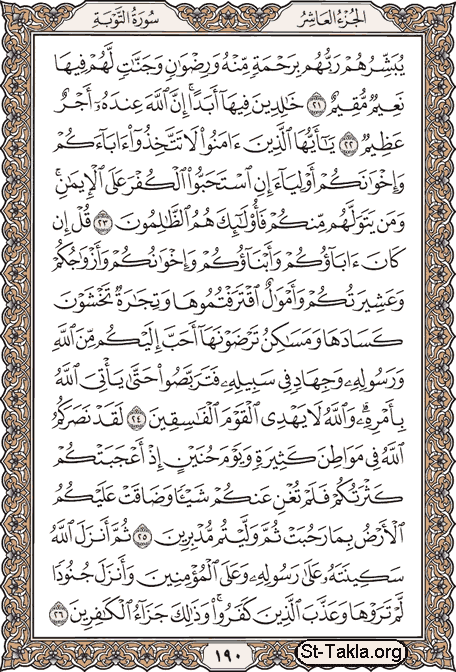 الجزء العاشر
سورة التوبة
يُبَشِّرُهُمْ رَبُّهُم بِرَحْمَةٍ مِّنْهُ وَرِضْوَٰنٍ وَجَنَّٰتٍ لَّهُمْ فِيهَا
نَعِيمٌ مُّقِيمٌ ٢١ خَٰلِدِينَ فِيهَآ أَبَدًا ۚ إِنَّ ٱللَّهَ عِندَهُۥٓ أَجْرٌ
عَظِيمٌ ٢٢ يَٰٓأَيُّهَا ٱلَّذِينَ ءَامَنُوا۟ لَا تَتَّخِذُوٓا۟ ءَابَآءَكُمْ
وَإِخْوَٰنَكُمْ أَوْلِيَآءَ إِنِ ٱسْتَحَبُّوا۟ ٱلْكُفْرَ عَلَى ٱلْإِيمَٰنِ ۚ
وَمَن يَتَوَلَّهُم مِّنكُمْ فَأُو۟لَٰٓئِكَ هُمُ ٱلظَّٰلِمُونَ ٢٣ قُلْ إِن
كَانَ ءَابَآؤُكُمْ وَأَبْنَآؤُكُمْ وَإِخْوَٰنُكُمْ وَأَزْوَٰجُكُمْ
وَعَشِيرَتُكُمْ وَأَمْوَٰلٌ ٱقْتَرَفْتُمُوهَا وَتِجَٰرَةٌ تَخْشَوْنَ
كَسَادَهَا وَمَسَٰكِنُ تَرْضَوْنَهَآ أَحَبَّ إِلَيْكُم مِّنَ ٱللَّهِ
وَرَسُولِهِۦ وَجِهَادٍ فِى سَبِيلِهِۦ فَتَرَبَّصُوا۟ حَتَّىٰ يَأْتِىَ ٱللَّهُ
بِأَمْرِهِۦ ۗ وَٱللَّهُ لَا يَهْدِى ٱلْقَوْمَ ٱلْفَٰسِقِينَ ٢٤ لَقَدْ نَصَرَكُمُ
ٱللَّهُ فِى مَوَاطِنَ كَثِيرَةٍ ۙ وَيَوْمَ حُنَيْنٍ ۙ إِذْ أَعْجَبَتْكُمْ
كَثْرَتُكُمْ فَلَمْ تُغْنِ عَنكُمْ شَيْـًٔا وَضَاقَتْ عَلَيْكُمُ
ٱلْأَرْضُ بِمَا رَحُبَتْ ثُمَّ وَلَّيْتُم مُّدْبِرِينَ ٢٥ ثُمَّ أَنزَلَ ٱللَّهُ
سَكِينَتَهُۥ عَلَىٰ رَسُولِهِۦ وَعَلَى ٱلْمُؤْمِنِينَ وَأَنزَلَ جُنُودًا
لَّمْ تَرَوْهَا وَعَذَّبَ ٱلَّذِينَ كَفَرُوا۟ ۚ وَذَٰلِكَ جَزَآءُ ٱلْكَٰفِرِينَ ٢٦
١٩٠
St-Takla.org